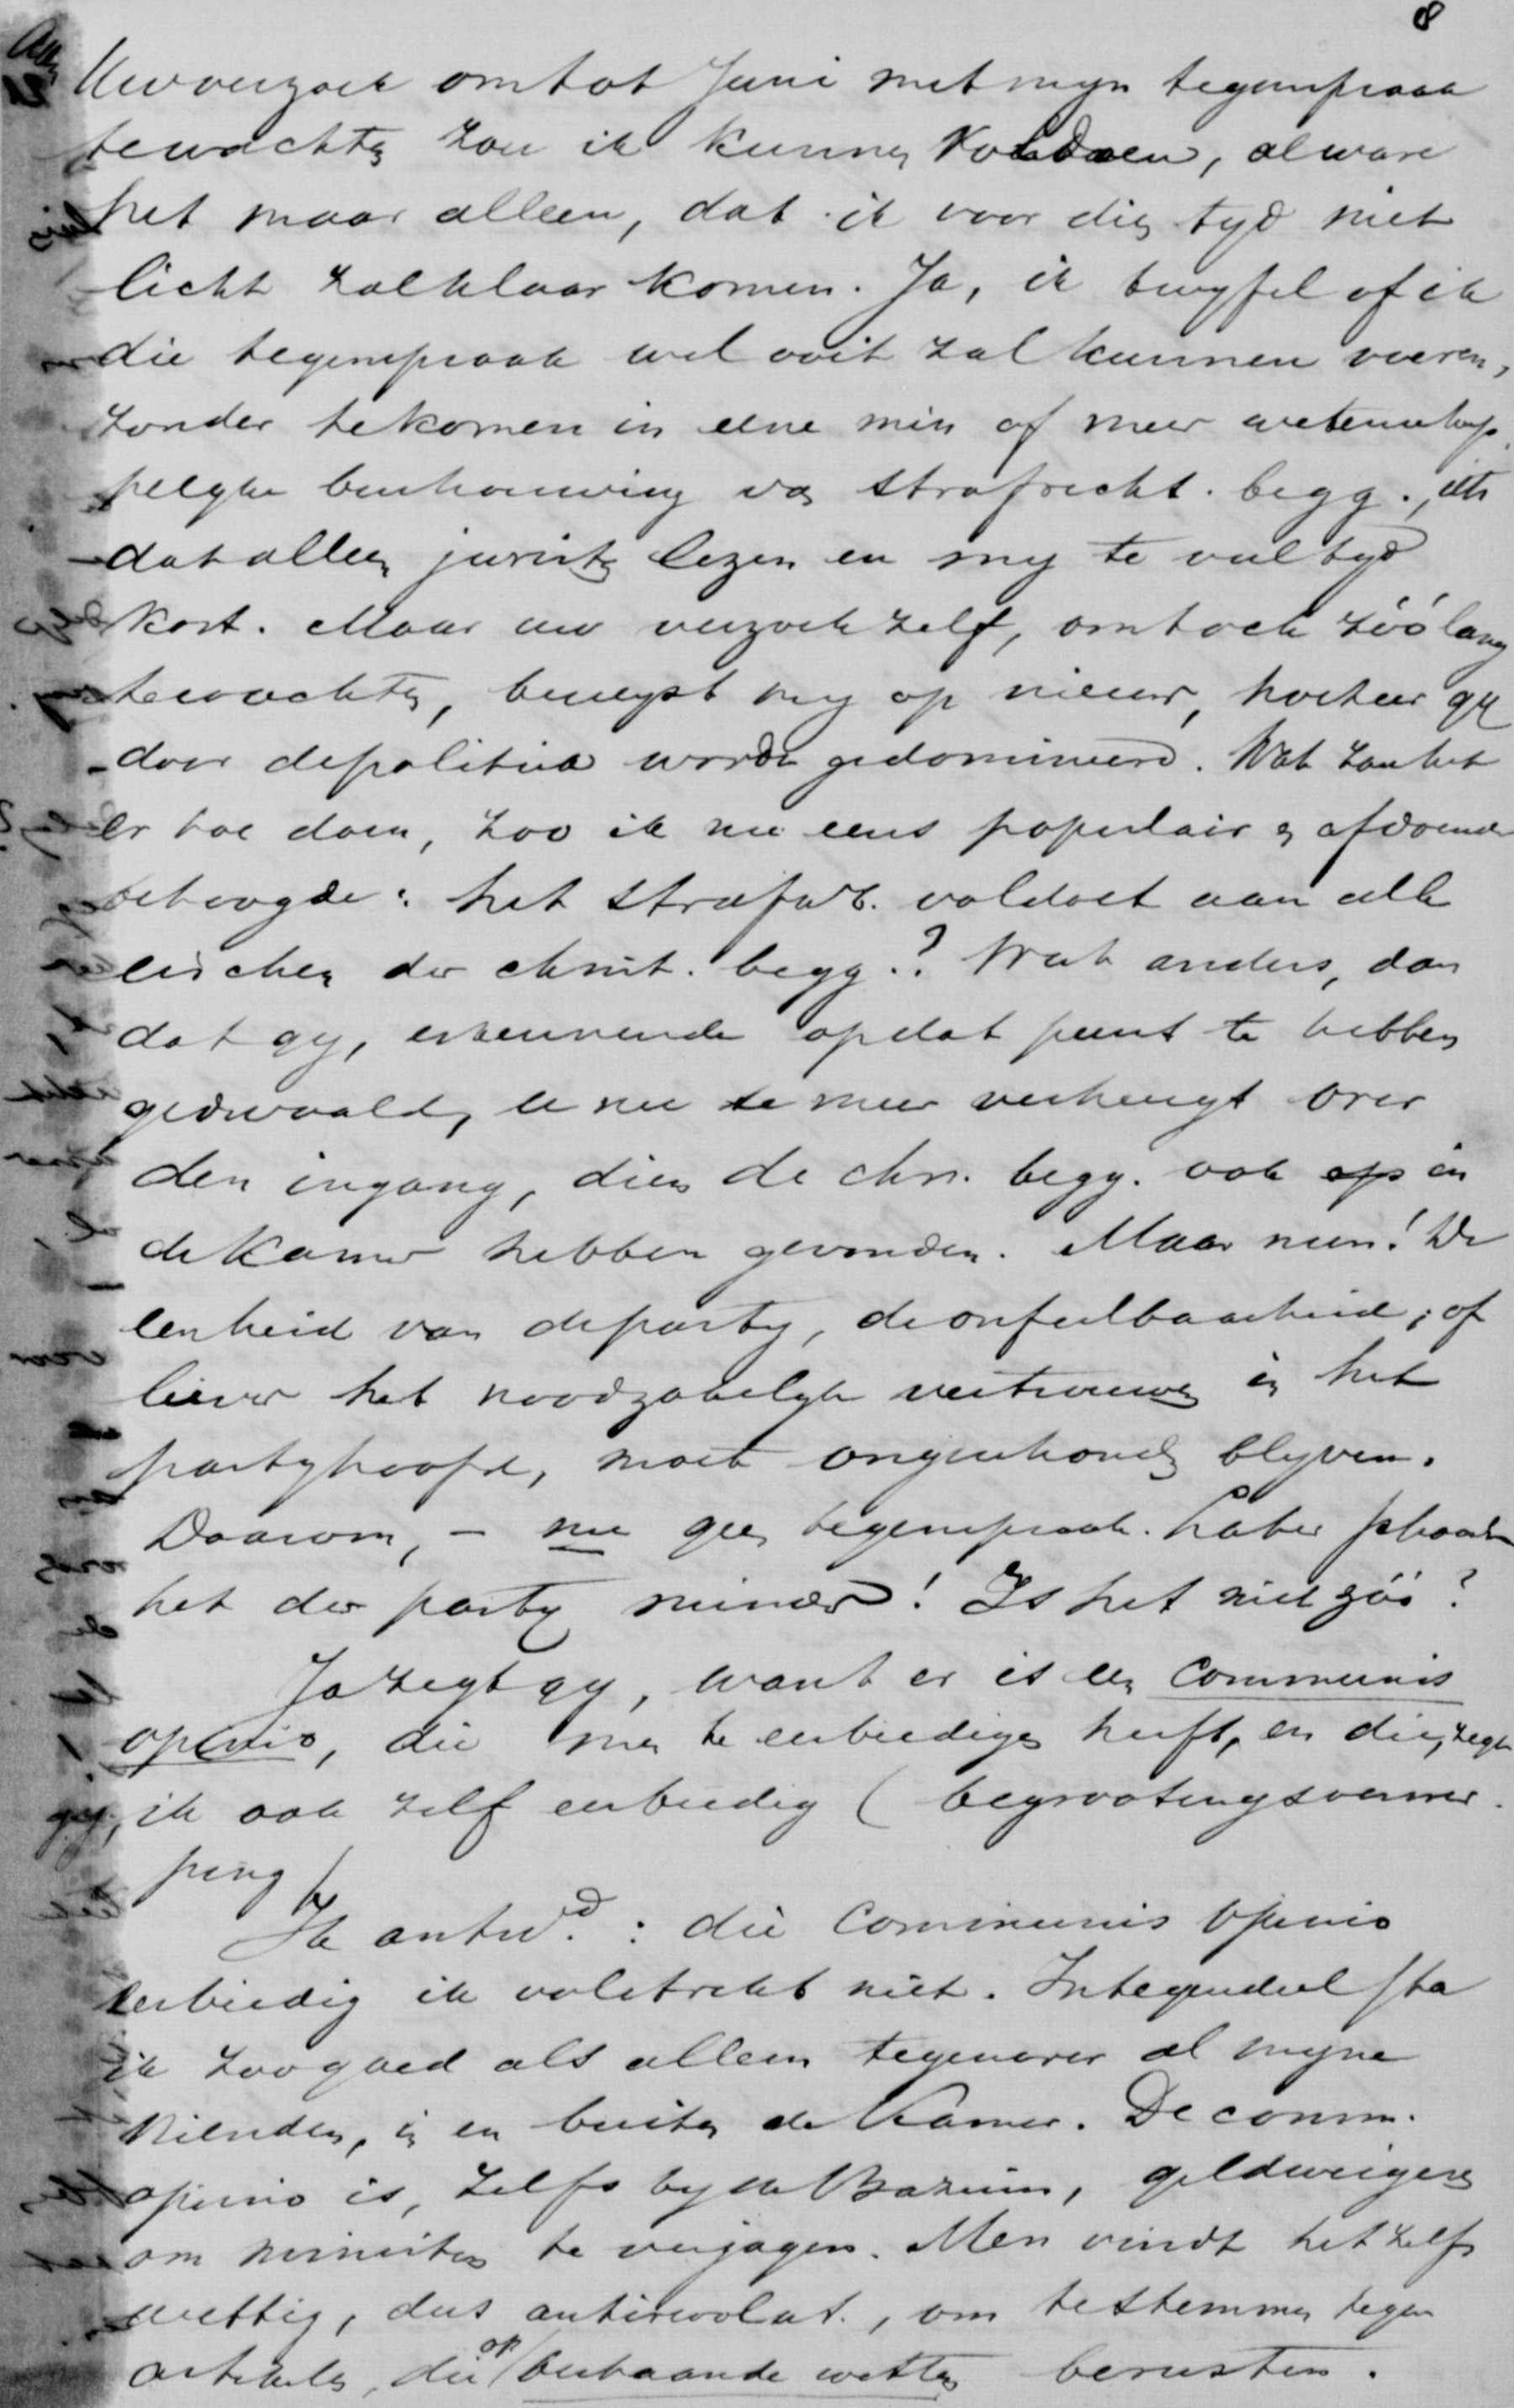 8
Uw verzoek om tot Juni met mijn tegenspraak
te wachten zou ik kunnen voldoen, al ware
het maar alleen, dat ik voor dien tijd niet
licht zal klaar komen. Ja, ik twijfel of ik
die tegenspraak wel ooit zal kunnen voeren,
zonder te komen in eene min of meer wetenschap
pelijke beschouwing van strafrecht. begg., iets
dat alleen juristen lezen en mij te veel tijd
kost. Maar uw verzoek zelf, om toch zóó lang
te wachten, bewijst mij op nieuw, hoezeer gij
door de politiek wordt gedomineerd. Wat zou het
er toe doen, zoo ik nu eens populair en afdoende
betoogde: het strafwb. voldoet aan alle
eischen der christ. begg.? Wat anders, dan
dat gij, erkennende op dat punt te hebben
gedwaald, u nu te meer verheugt over
den ingang, dien de chr. begg. ook in
de Kamer hebben gevonden. Maar neen! De
eenheid van de partij, de onfeilbaarheid, of
liever het noodzakelijk vertrouwen in het
partijhoofd, moet ongeschonden blijven.
Daarom, – nu geen tegenspraak. Later schaadt
het der partij minder! Is het niet zóó?
Ja zegt gij, want er is een communis
opinio, die men te eerbiedigen heeft, en die, zegt
gij, ik ook zelf eerbiedig (begrootingsverwer-
ping)
Ik antwd.: die communis opinio
eerbiedig ik volstrekt niet. Integendeel sta
ik zoo goed als alleen tegenover al mijne
vrienden, in en buiten de Kamer. De comm.
opinio is, zelfs bij de Bazuin, geld weigeren
om ministers te verjagen. Men vindt het zelfs
wettig, dus antirevolut., om te stemmen tegen
artikelen, die op bestaande wetten berusten.